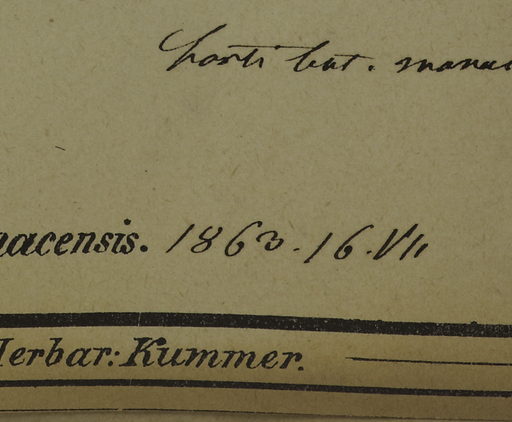 horti bot. monac
nacensis. 1863. 16. VII
Herbar: Kummer.